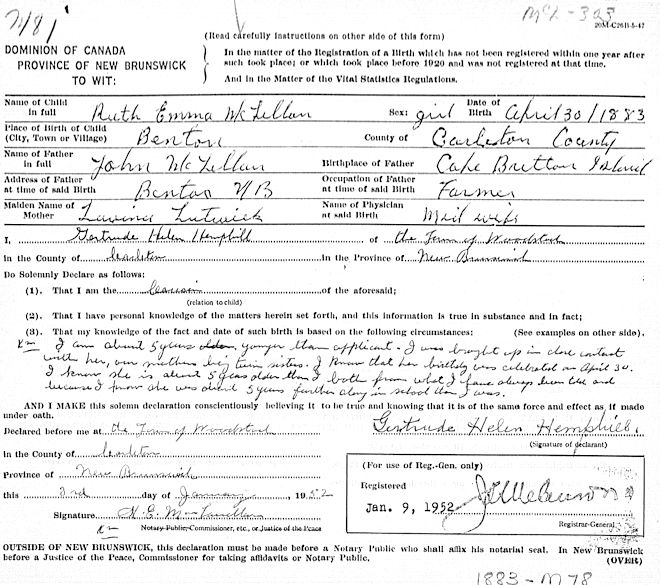 McL-323
20M-C26B-5-47
(Read carefully instructions on other side of this form)
DOMINION OF CANADA
PROVINCE OF NEW BRUNSWICK
TO WIT:
In the matter of the Registration of a Birth which has not been registered within one year after
such took place; or which took place before 1920 and was not registered at that time.
And in the Matter of the Vital Statistics Regulations.
Name of Child in full Ruth Emma McLellan Sex: girl Date of Birth April 30/1883
Place of Birth of Child (City, Town or Village) Benton County of Carleton County
Name of Father in full John McLellan Birthplace of Father Cape Bretton Island
Address of Father at time of said Birth Benton NB Occupation of Father at time of said Birth Farmer
Maiden Name of Mother Lavina Lutwick Name of Physician at said Birth Mid wife
I, Gertrude Helen Hemphill of the Town of Woodstock
in the County of Carleton In the Province of New Brunswick
Do Solemnly Declare as follows:
(1). That I am the cousin of the aforesaid;
(relation to child)
(2). That I have personal knowledge of the matters herein set forth, and this information is true in substance and in fact;
(3). That my knowledge of the fact and date of such birth is based on the following circumstances: (See examples on other side).
I am about 5 years older younger than applicant. I was brought up in close contact
with her, our mothers being twin sisters. I know that her birthday was celebrated on April 30.
I know she is about 5 years older than I both from what I have always been told and
because I know she was about 5 years further along in school than I was.
AND I MAKE this solemn declaration conscientiously believing it to be true and knowing that it is of the same force and effect as if made
under oath.
Declared before me at the Town of Woodstock
Gertrude Helen Hemphill
(Signature of declarant)
In the County of Carleton
Province of New Brunswick
this 3rd day of January, 1952
Signature
Notary Public, Commissioner, etc., or Justice of the Peace
(For use of Reg.-Gen. only)
Registered
Jan. 9, 1952
Registrar-General
OUTSIDE OF NEW BRUNSWICK, this declaration must be made before a Notary Public who shall affix his notarial seal. In New Brunswick
before a Justice of the Peace, Commissioner for taking affidavits or Notary Public.
(OVER)
1883-M78